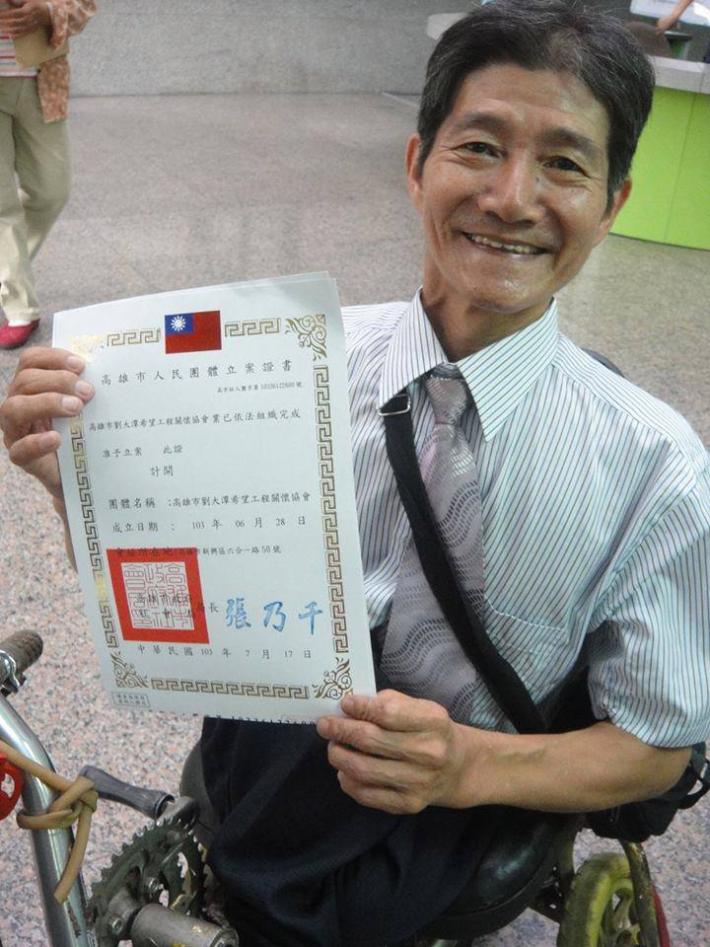 高雄市人民團體立案證書
高市社人團字第10336122600號
高雄市劉大潭希望工程關懷協會業已依法組織完成
准予立案 此證
計開
團體名稱 : 高雄市劉大潭希望工程關懷協會
成立日期 : 103 年 06 月 28 日
會址所在地:高雄市新興區六合一路50號
高雄市政府
社會局
局長 張乃千
中華民國 103 年 7 月 17 日